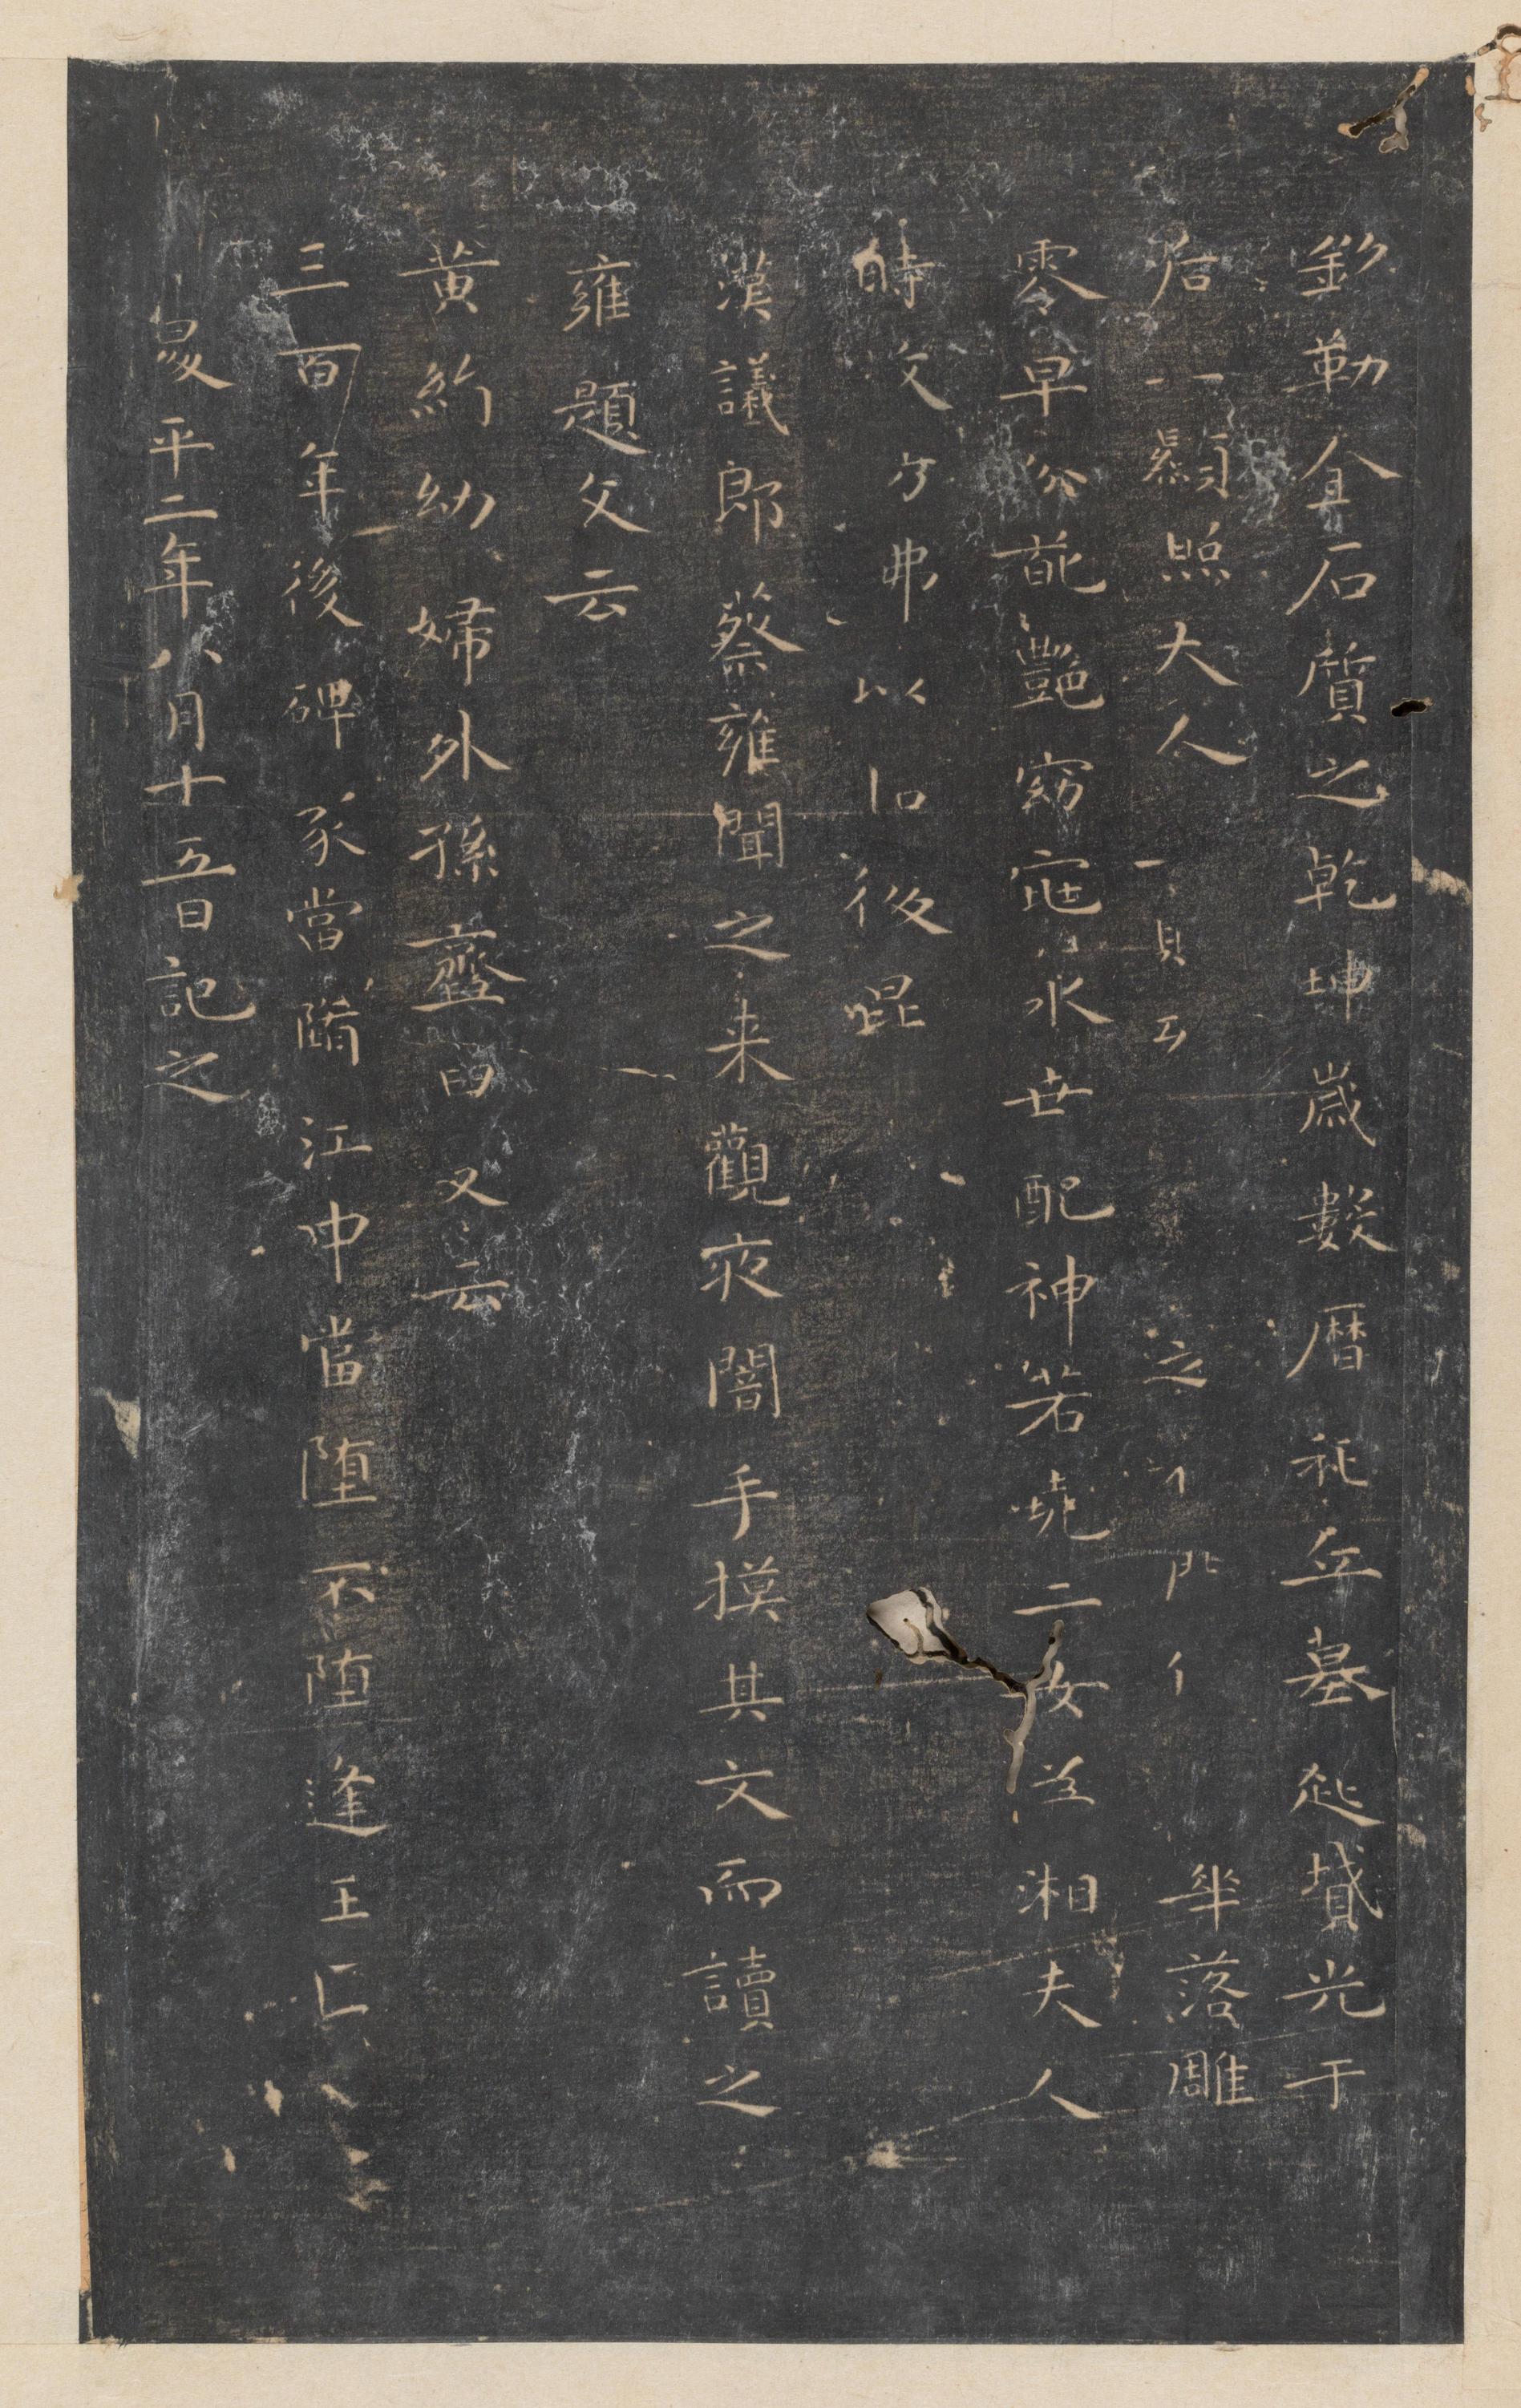 彰勒金石質之乾坤歲數曆祀立墓起墳光于
后顯照大人之華落雕
零早分葩艷窈窕永世配神若堯二女為湘夫人
時效髣髴以招後昆
漢議郎蔡雍聞之来觀夜闇手摸其文而讀之
雍題文云
黄絹幼婦外孫齏臼又云
三百年後碑冢當墮江中當墮不墮逢王匡
昇平二年八月十五日記之